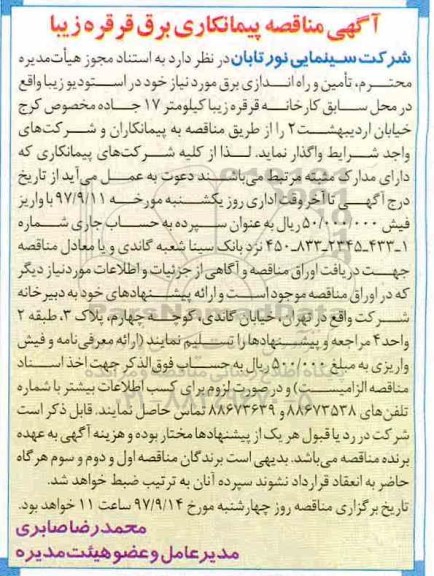 آگهی مناقصه پیمانکاری برق قرقره زیبا
شرکت سینمایی نور تابان در نظر دارد به استناد مجوز هیأت‌مدیره
محترم، تأمین و راه اندازی برق مورد نیاز خود در استودیو زیبا واقع
در محل سابق کارخانه قرقره زیبا کیلومتر ۱۷ جاده مخصوص کرج
خیابان اردیبهشت ۲ را از طریق مناقصه به پیمانکاران و شرکت‌های
واجد شرایط واگذار نماید. لذا از کلیه شرکت‌های پیمانکاری که
دارای مدارک مثبته مرتبط می‌باشند دعوت به عمل می‌آید از تاریخ
درج آگهی تا آخر وقت اداری روز یکشنبه مورخه ۹۷/۹/۱۱ با واریز
فیش ۵۰/۰۰۰/۰۰۰ ریال به عنوان سپرده به حساب جاری شماره
۱-۴۳۳-۲۳۴۵-۸۳۳-۴۵۰ نزد بانک سینا شعبه گاندی و یا معادل مناقصه
جهت دریافت اوراق مناقصه و آگاهی از جزئیات و اطلاعات مورد نیاز دیگر
که در اوراق مناقصه موجود است و ارائه پیشنهادهای خود به دبیرخانه
شرکت واقع در تهران، خیابان گاندی، کوچه چهارم، پلاک ۳، طبقه ۲
واحد ۴ مراجعه و پیشنهادها را تسلیم نمایند (ارائه معرفی‌نامه و فیش
واریزی به مبلغ ۵۰۰/۰۰۰ ریال به حساب فوق الذکر جهت اخذ اسناد
مناقصه الزامیست) و در صورت لزوم برای کسب اطلاعات بیشتر با شماره
تلفن‌های ۸۸۶۷۳۵۳۸ و ۸۸۶۷۳۶۳۹ تماس حاصل نمایند. قابل ذکر است
شرکت در رد یا قبول هر یک از پیشنهادها مختار بوده و هزینه آگهی به عهده
برنده مناقصه می‌باشد. بدیهی است برندگان مناقصه اول و دوم و سوم هرگاه
حاضر به انعقاد قرارداد نشوند سپرده آنان به ترتیب ضبط خواهد شد.
تاریخ برگزاری مناقصه روز چهارشنبه مورخ ۹۷/۹/۱۴ ساعت ۱۱ خواهد بود.
محمدرضا صابری
مدیرعامل و عضو هیئت مدیره